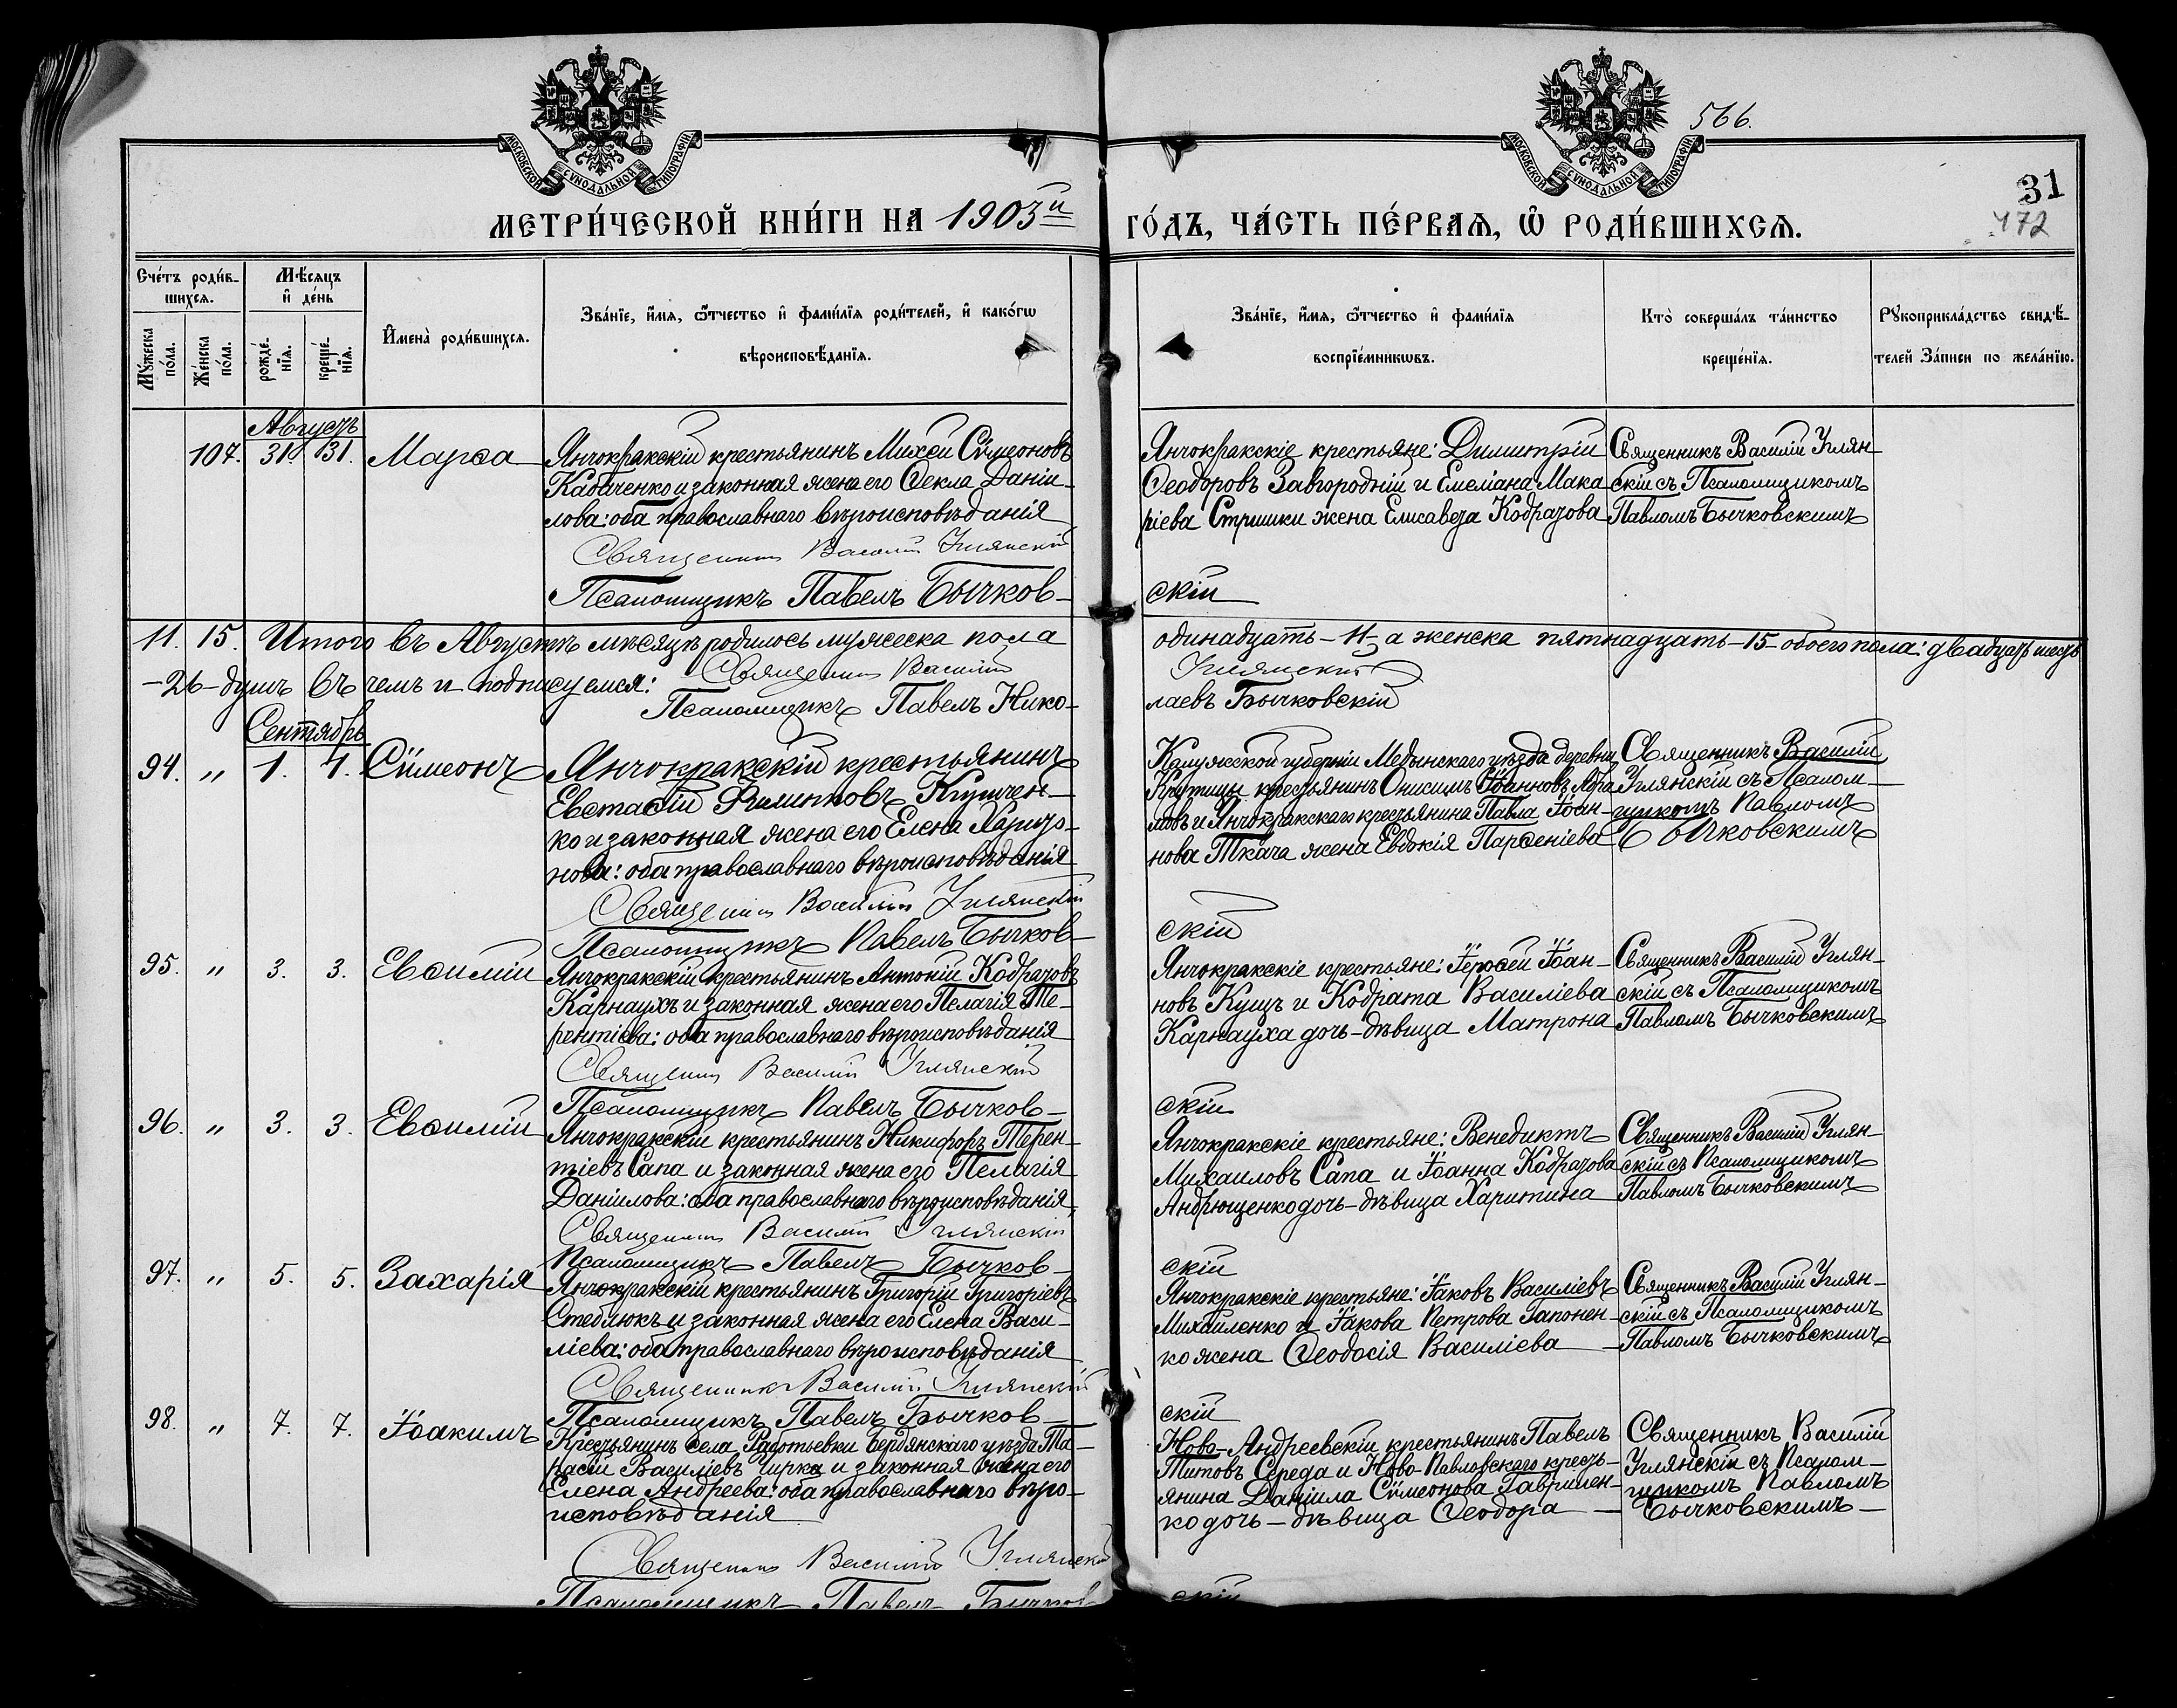 566.
31
472
МОСКОВСКОЙ СѴНОДАЛЬНОЙ ТИПОГРАФІИ
МОСКОВСКОЙ СѴНОДАЛЬНОЙ ТИПОГРАФІИ
МЕТРИ́ЧЕСКОЙ КНИ́ГИ НА 1903й ГО́ДЪ, ЧА́СТЬ ПЕ́РВАѦ, Ѡ҆ РОДИ́ВШИХСѦ.
Сче́тъ роди́в-
шихсѧ.
Мꙋ́жеска по́ла.
Же́нска по́ла.
Мѣ́сѧцъ
и҆ де́нь
рожде́-
нїѧ.
креще́-
нїѧ.
И҆мена̀ роди́вшихсѧ.
Зва́нїе, и҆́мѧ, ѻ҆́тчество и҆ фами́лїѧ роди́телей, и҆ како́гѡ
вѣроисповѣ́данїѧ.
Зва́нїе, и҆́мѧ, ѻ҆́тчество и҆ фами́лїѧ
воспрїе́мникѡвъ.
Кто̀ соверша́лъ та́инство
креще́нїѧ.
Рꙋкоприкла́дство свидѣ́-
телей За́писи по жела́нїю.
Августъ
107. 31. 31. Марѳа
Янчокракскій крестьянинъ Михей Сѵмеоновъ
Кабаченко и законная жена его Ѳекла Даніи-
лова: оба православнаго вѣроисповѣданія
Священникъ Василій Углянскій
Псаломщикъ Павелъ Бычков-
Янчокракскіе крестьяне: Димитрій
Ѳеодоровъ Завгородній и Емеліана Мака
ріева Стришки жена Елисавета Кодратова
скій
Священникъ Василій Углян-
скій съ Псаломщикомъ
Павломъ Бычковскимъ
11. 15. Итого въ Августѣ мѣсяцѣ родилось мужеска пола одинадцать-11-а женска пятнадцать-15-обоего пола: двадцать шесть
-26-душъ въ чемъ и подписуемся: Священникъ Василій Углянскій
Псаломщикъ Павелъ Нико-лаевъ Бычковскій
Сентябрь
94. " 1. 4. Сѵмеонъ
Янчокракскій крестьянинъ
Евстаѳій Филипповъ Кушчен-
ко и законная жена его Елена Харито-
нова: оба православнаго вѣроисповѣданія
Священникъ Василій Углянскій
Псаломщикъ Павелъ Бычков-
Калужской губерніи Медынскаго уѣзда деревни
Крутицы крестьянинъ Онисимъ Іоанновъ Абра
мовъ и Янчокракскаго крестьянина Павла Іоан-
нова Ткача жена Евдокія Парѳеніева
скій
Священникъ Василій
Углянскій съ Псалом-
щикомъ Павломъ
Бычковскимъ
95. " 3. 3. Евѳимій
Янчокракскій крестьянинъ Антоній Кодратовъ
Карнаухъ и законная жена его Пелагія Те-
рентіева: оба православнаго вѣроисповѣданія
Священникъ Василій Углянскій
Псаломщикъ Павелъ Бычков-
Янчокракскіе крестьяне: Іероѳей Іоан-
новъ Кущъ и Кодрата Василіева
Карнауха дочь-дѣвица Матрона
скій
Священникъ Василій Углян-
скій съ Псаломщикомъ
Павломъ Бычковскимъ
96. " 3. 3. Евѳимій
Янчокракскій крестьянинъ Никифоръ Терен-
тіевъ Сапа и законная жена его Пелагія
Даніилова: оба православнаго вѣроисповѣданія,
Священникъ Василій Углянскій
Псаломщикъ Павелъ Бычков-
Янчокракскіе крестьяне: Венедиктъ
Михаиловъ Сапа и Іоанна Кодратова
Андрющенко дочь-дѣвица Харитина
скій
Священникъ Василій Углян-
скій съ Псаломщикомъ
Павломъ Бычковскимъ
97. " 5. 5. Захарія
Янчокракскій крестьянинъ Григорій Григоріевъ
Стеблюкъ и законная жена его Елена Васи-
ліева: оба православнаго вѣроисповѣданія
Священникъ Василій Углянскій
Псаломщикъ Павелъ Бычков-
Янчокракскіе крестьяне: Іаковъ Василіевъ
Михайленко и Іакова Петрова Гапонен-
ко жена Ѳеодосія Василіева
скій
Священникъ Василій Углян-
скій съ Псаломщикомъ
Павломъ Бычковскимъ
98. " 7. 7. Іоакимъ
Крестьянинъ села Работьевки Бердянскаго уѣзда Та-
расій Василіевъ Чирка и законная жена его
Елена Андреева: оба православнаго вѣро-
исповѣданія
Священникъ Василій Углянскій
Псаломщикъ Павелъ Бычков-
Ново-Андреевскій крестьянинъ Павелъ
Титовъ Середа и Ново-Павловскаго кресть-
янина Даніила Сѵмеонова Гаврилен-
ко дочь-дѣвица Ѳеодора
скій
Священникъ Василій
Углянскій съ Псалом-
щикомъ Павломъ
Бычковскимъ